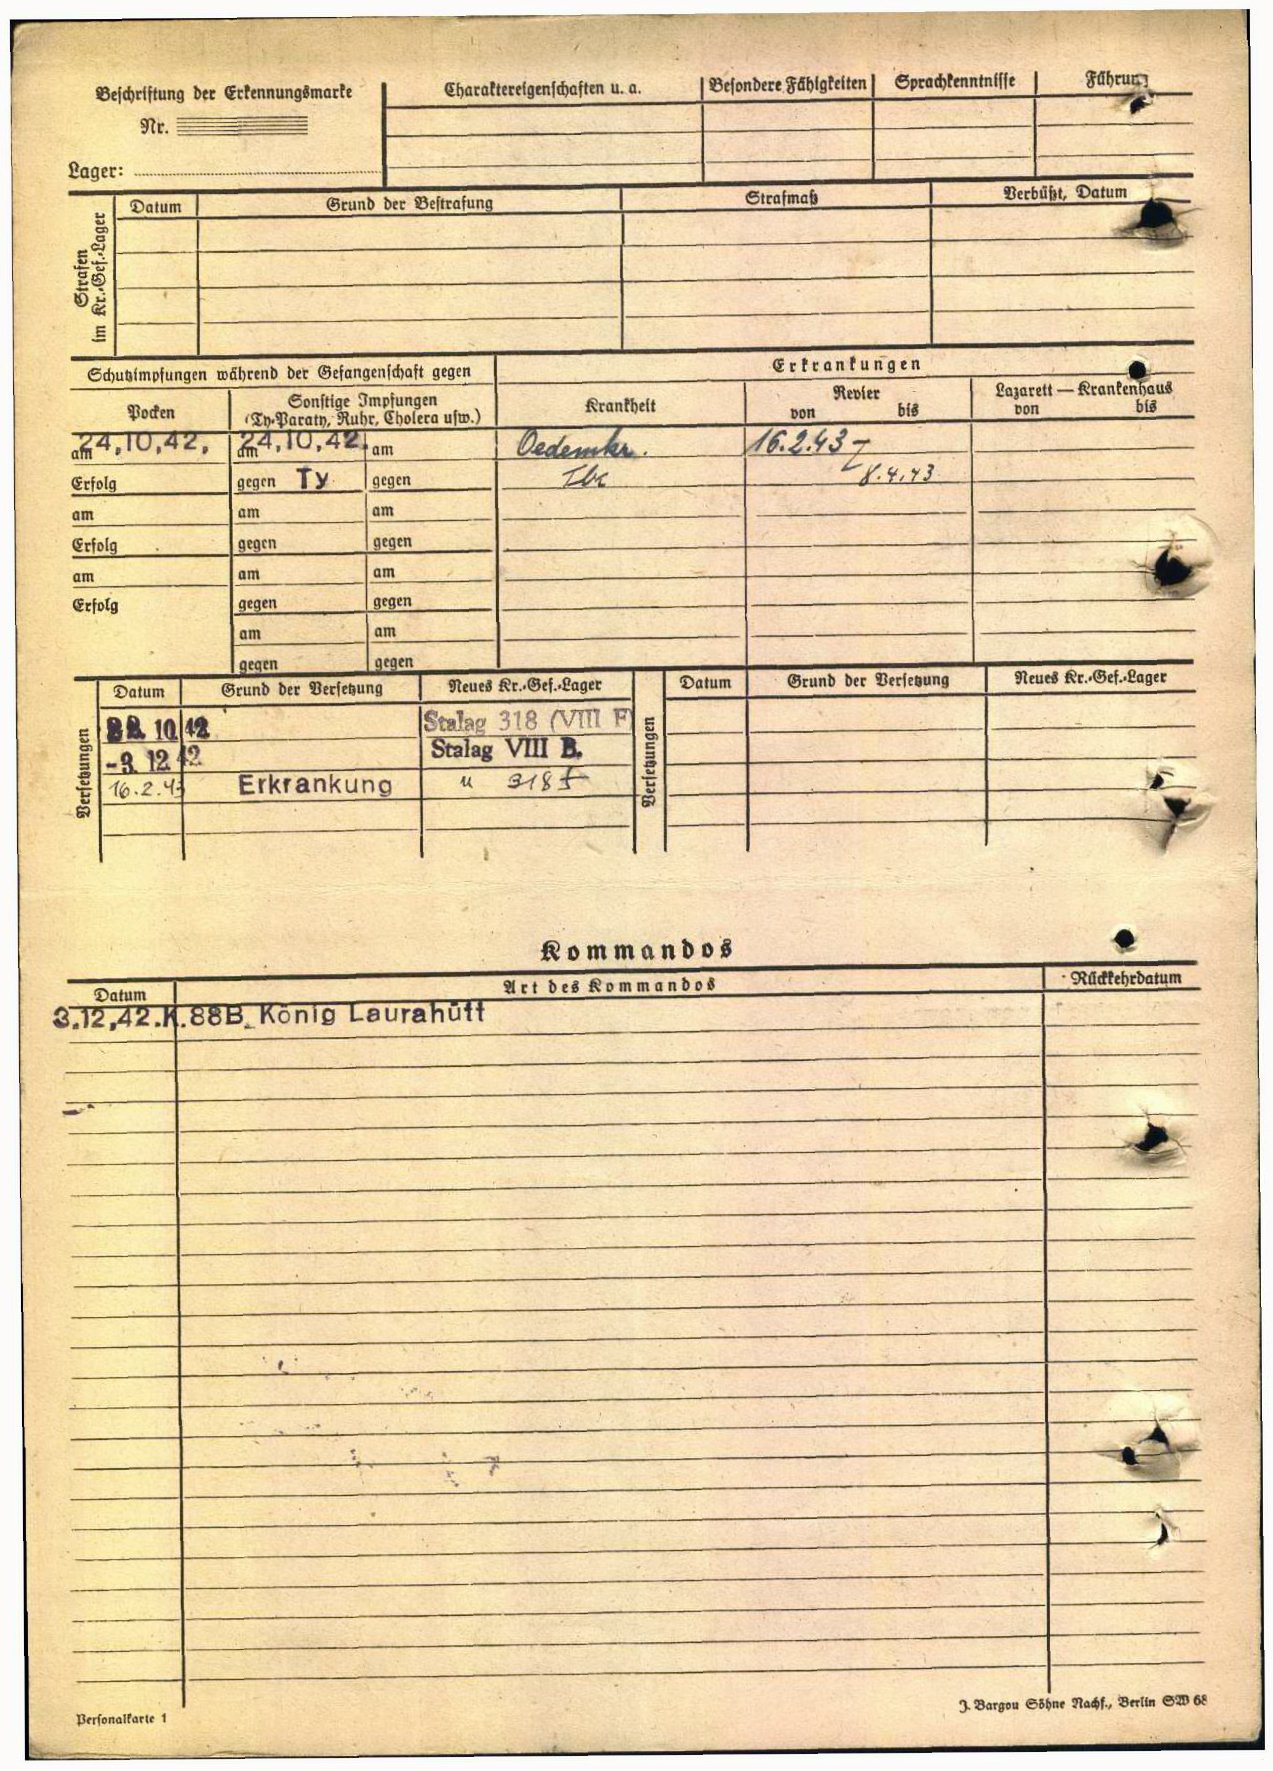 Beschriftung der Erkennungsmarke
Nr.
Lager:
Charaktereigenschaften u. a. Besondere Fähigkeiten Sprachkenntnisse Führung
Strafen im Kr.-Gef.-Lager
Datum Grund der Bestrafung Strafmaß Verbüßt, Datum
Schutzimpfungen während der Gefangenschaft gegen
Erkrankungen
Pocken
Sonstige Impfungen
(Ty-Paraty, Ruhr, Cholera usw.)
Krankheit
Revier
von bis
Lazarett — Krankenhaus
von bis
am 24,10,42, am 24,10,42, am Oedemkr. 16.2.43 -
Erfolg gegen Ty gegen Tbc 8.4.43
am am am
Erfolg gegen gegen
am am am
Erfolg gegen gegen
am am
gegen gegen
Versetzungen
Datum Grund der Versetzung Neues Kr.-Gef.-Lager
10 42 Stalag 318 (VIII F)
-3. 12 42 Stalag VIII B.
16.2.43 Erkrankung " 318 f
Versetzungen
Datum Grund der Versetzung Neues Kr.-Gef.-Lager
Kommandos
Datum Art des Kommandos Rückkehrdatum
3.12,42.K.88B. König Laurahütt
Personalkarte 1
J. Bargou Söhne Nachf., Berlin SW 68